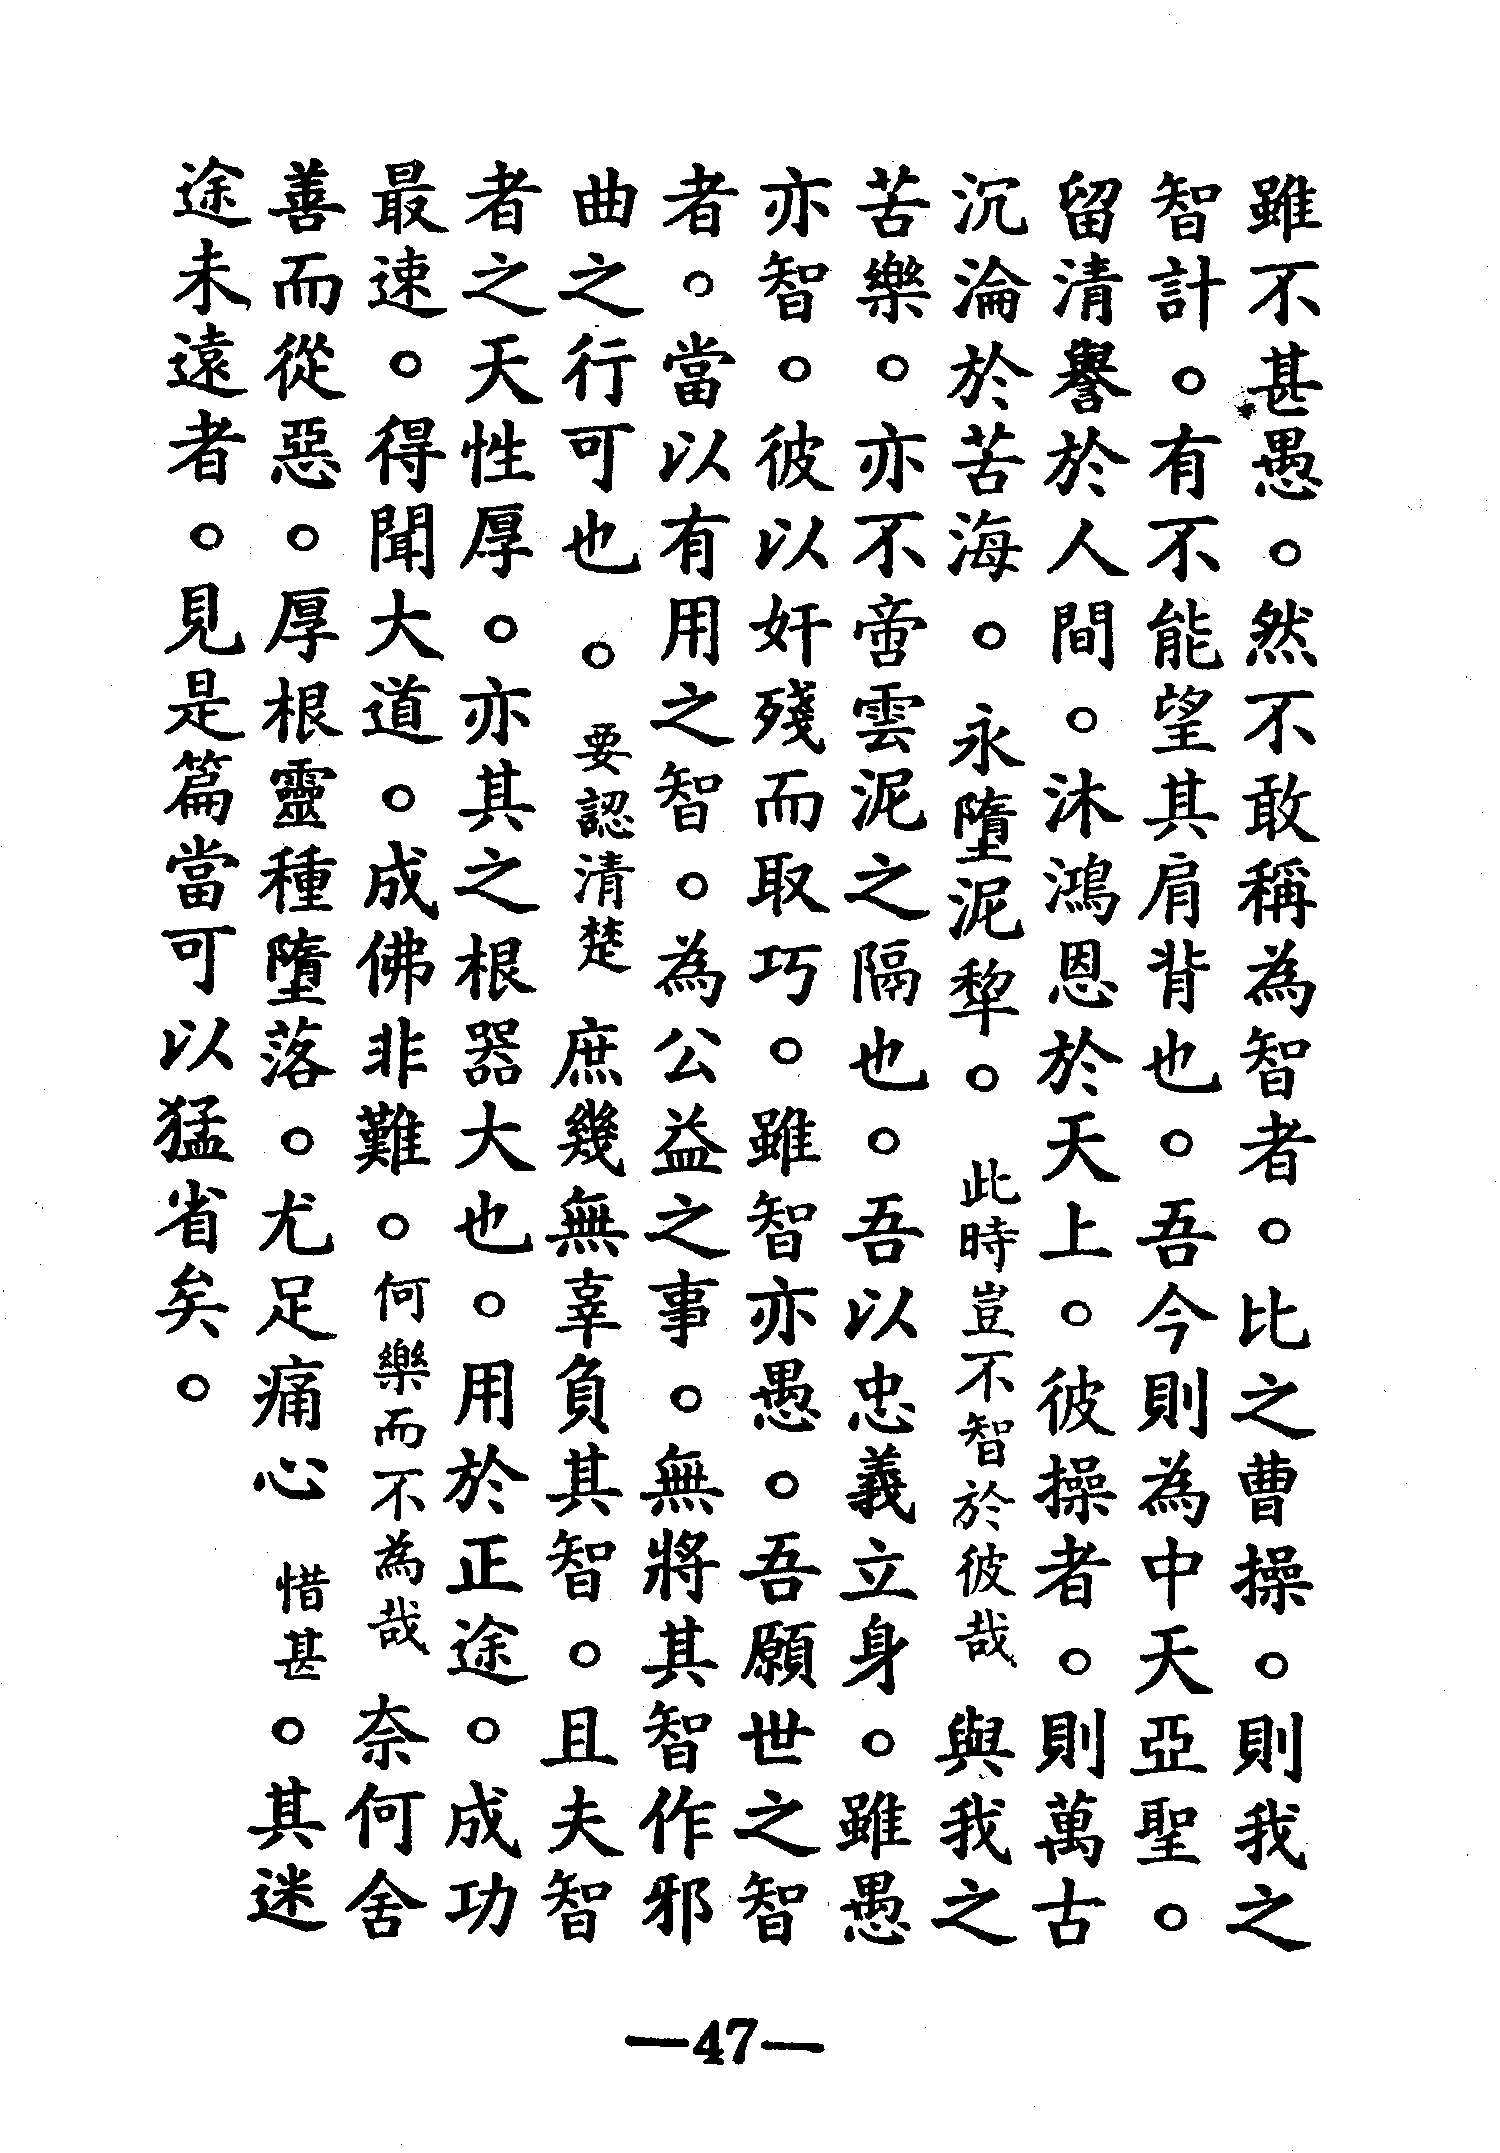 雖不甚愚。然不敢稱為智者。比之曹操。則我之
智計。有不能望其肩背也。吾今則為中天亞聖。
留清譽於人間。沐鴻恩於天上。彼操者。則萬古
沉淪於苦海。永墮泥犂。此時豈不智於彼哉與我之
苦樂。亦不啻雲泥之隔也。吾以忠義立身。雖愚
亦智。彼以奸殘而取巧。雖智亦愚。吾願世之智
者。當以有用之智。為公益之事。無將其智作邪
曲之行可也。要認清楚庶幾無辜負其智。且夫智
者之天性厚。亦其之根器大也。用於正途。成功
最速。得聞大道。成佛非難。何樂而不為哉奈何舍
善而從惡。厚根靈種墮落。尤足痛心惜甚。其迷
途未遠者。見是篇當可以猛省矣。
—47—